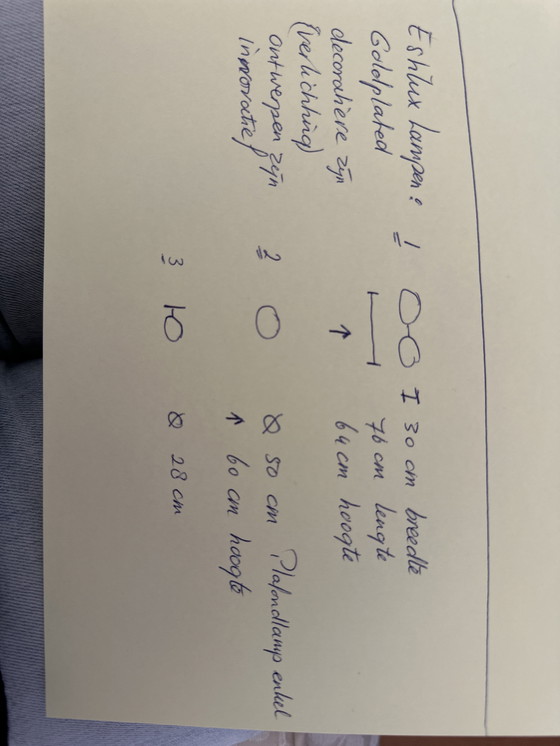 Eshlux Lampen: 1 I 30 cm breedte
Goldplated 76 cm lengte
decoratieve zijn ↑ 64 cm hoogte
(verlichting)
ontwerpen zijn 2 Ø 50 cm Plafondlamp enkel
innovatief ↑ 60 cm hoogte
3 Ø 28 cm